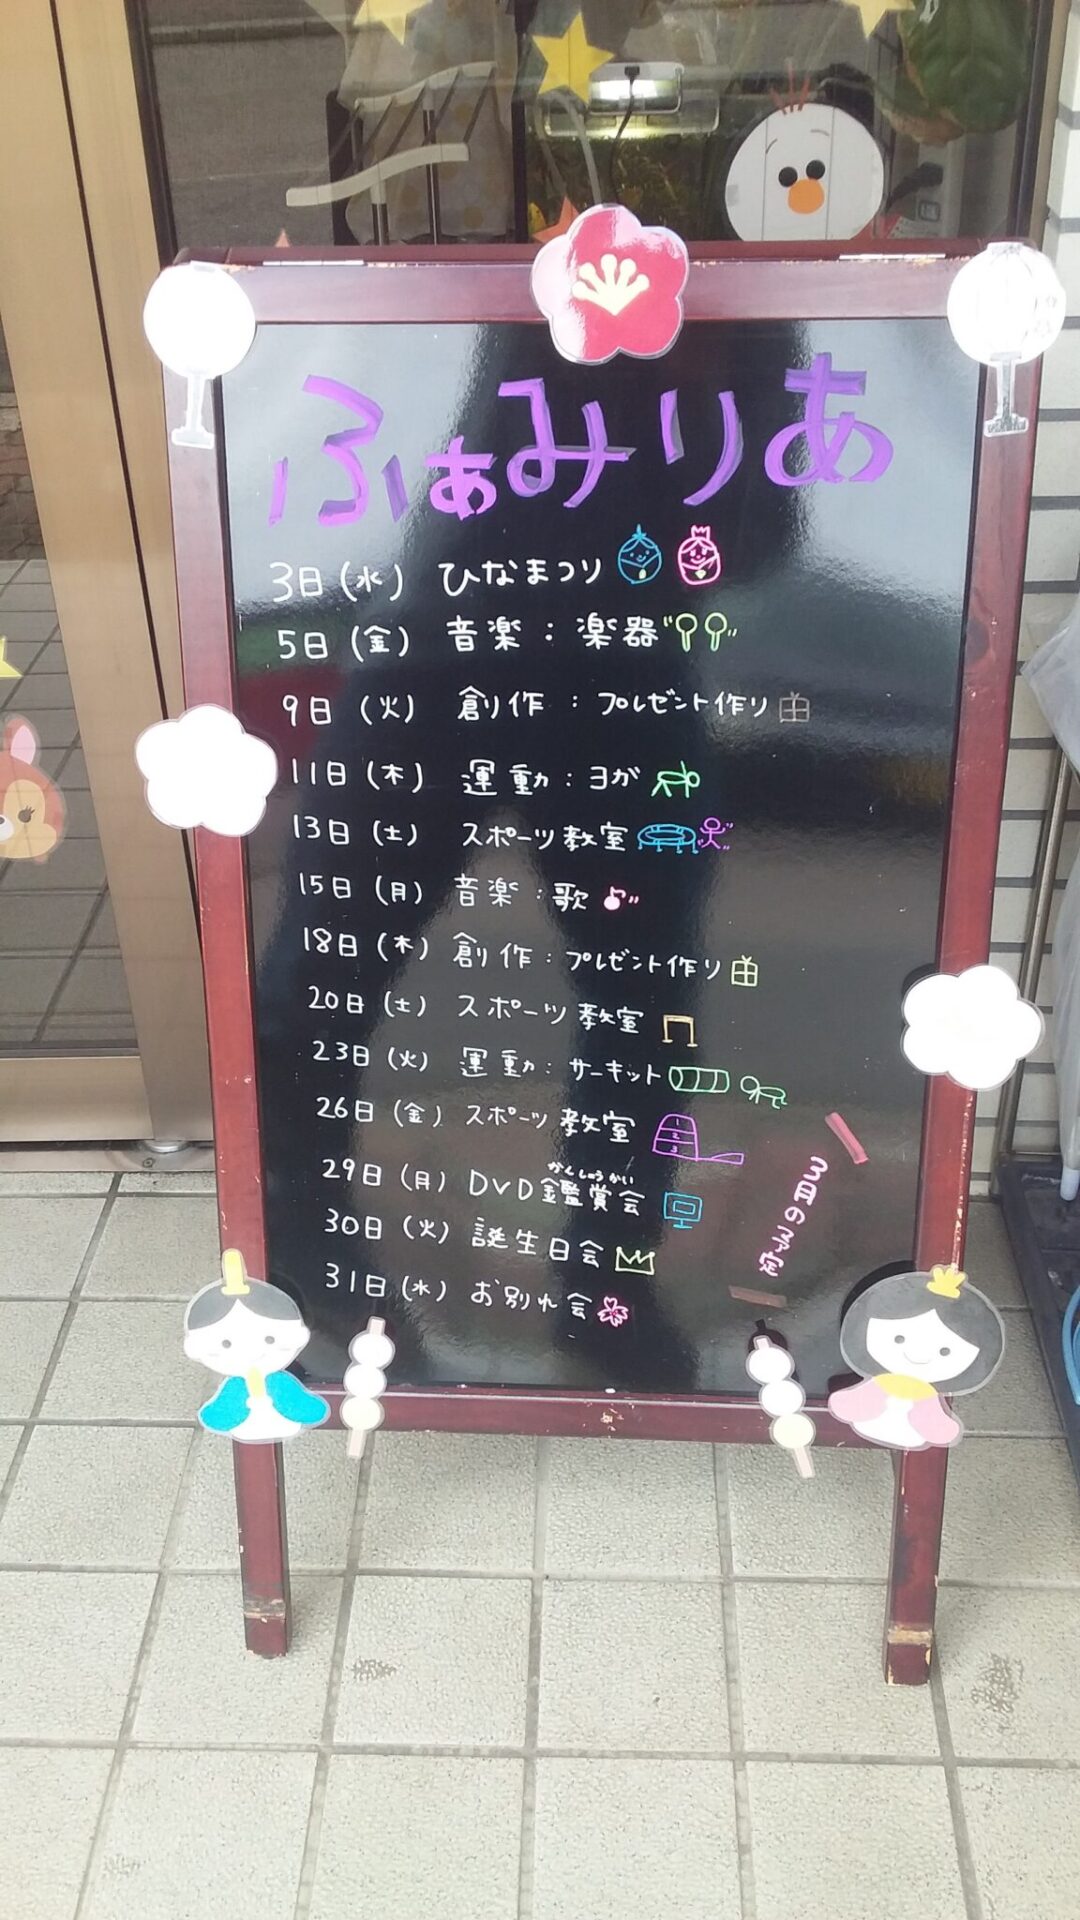 ふぁみりあ
3日(水) ひなまつり
5日(金) 音楽:楽器
9日(火) 創作:プレゼント作り
11日(木) 運動:ヨガ
13日(土) スポーツ教室
15日(月) 音楽:歌
18日(木) 創作:プレゼント作り
20日(土) スポーツ教室
23日(火) 運動:サーキット
26日(金) スポーツ教室
1
2
3
かんしょうかい
29日(月) DVD鑑賞会
30日(火) 誕生日会
31日(水) お別れ会
3月の予定